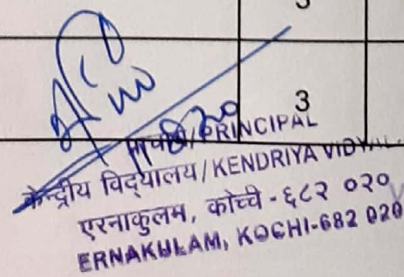 3
/PRINCIPAL
केन्द्रीय विद्यालय/KENDRIYA
एरनाकुलम, कोच्ची-६८२ ०२०
ERNAKULAM, KOCHI-682 020